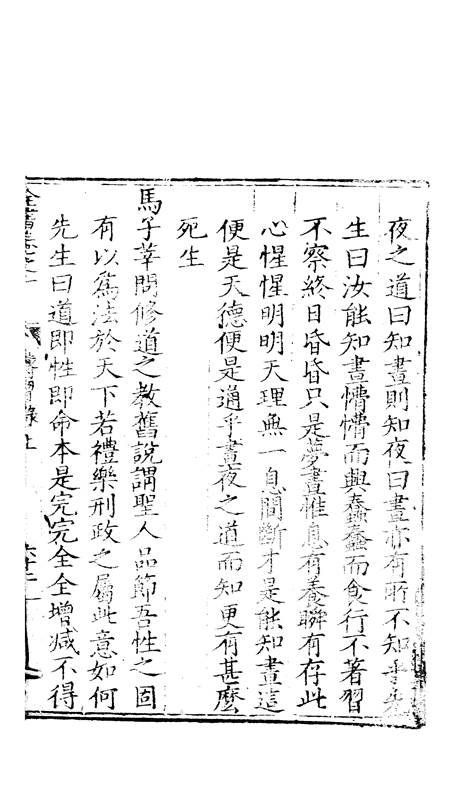 夜之道曰知晝則知夜曰晝亦有所不知乎先
生曰汝能知晝懵懵而興蠢蠢而食行不著習
不察終日昏昏只是夢晝惟息有養瞬有存此
心惺惺明明天理無一息間斷才是能知晝這
便是天德便是通乎晝夜之道而知更有甚麼
死生
馬子莘問修道之教舊說謂聖人品節吾性之固
有以為法於天下若禮樂刑政之屬此意如何
先生曰道即性即命本是完完全全增減不得
全書卷之一 傳習錄上